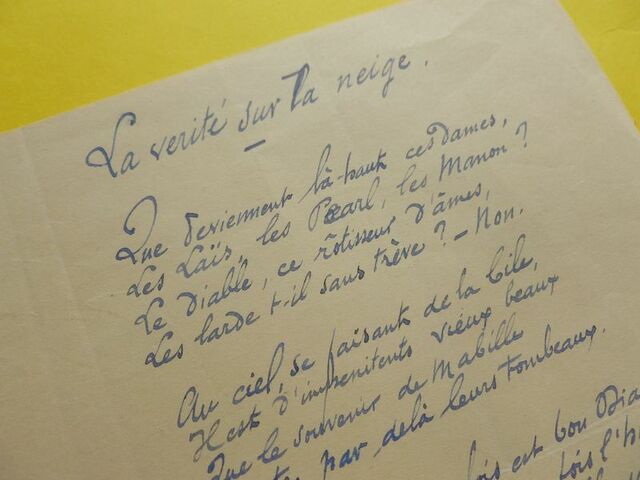 La verité sur la neige.
Que deviennent là-haut ces Dames,
Les Laïs, les Pearl, les Manon ?
Le Diable, ce rôtisseur d'âmes,
Les larde t-il sans trêve ? — Non.
Au ciel, se faisant de la bile,
Il est d'impénitents vieux beaux
Que le souvenir de Mabille
par delà leurs tombeaux.
est bon Dia
fois l'